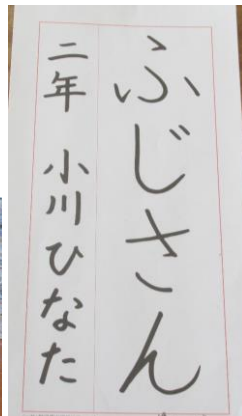 ふじさん
二年 小川ひなた